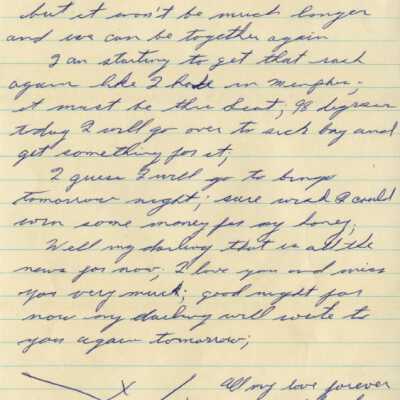 but it won't be much longer
and we can be together again
I am starting to get that rash
again like I had in Memphis;
it must be this heat, 98 degrees
today I will go over to sick bay and
get something for it;
I guess I will go to bingo
tomorrow night; sure wish I could
win some money for my honey;
Well my darling that is all the
news for now; I love you and miss
you very much; good night for
now my darling will write to
you again tomorrow;
X All my love forever